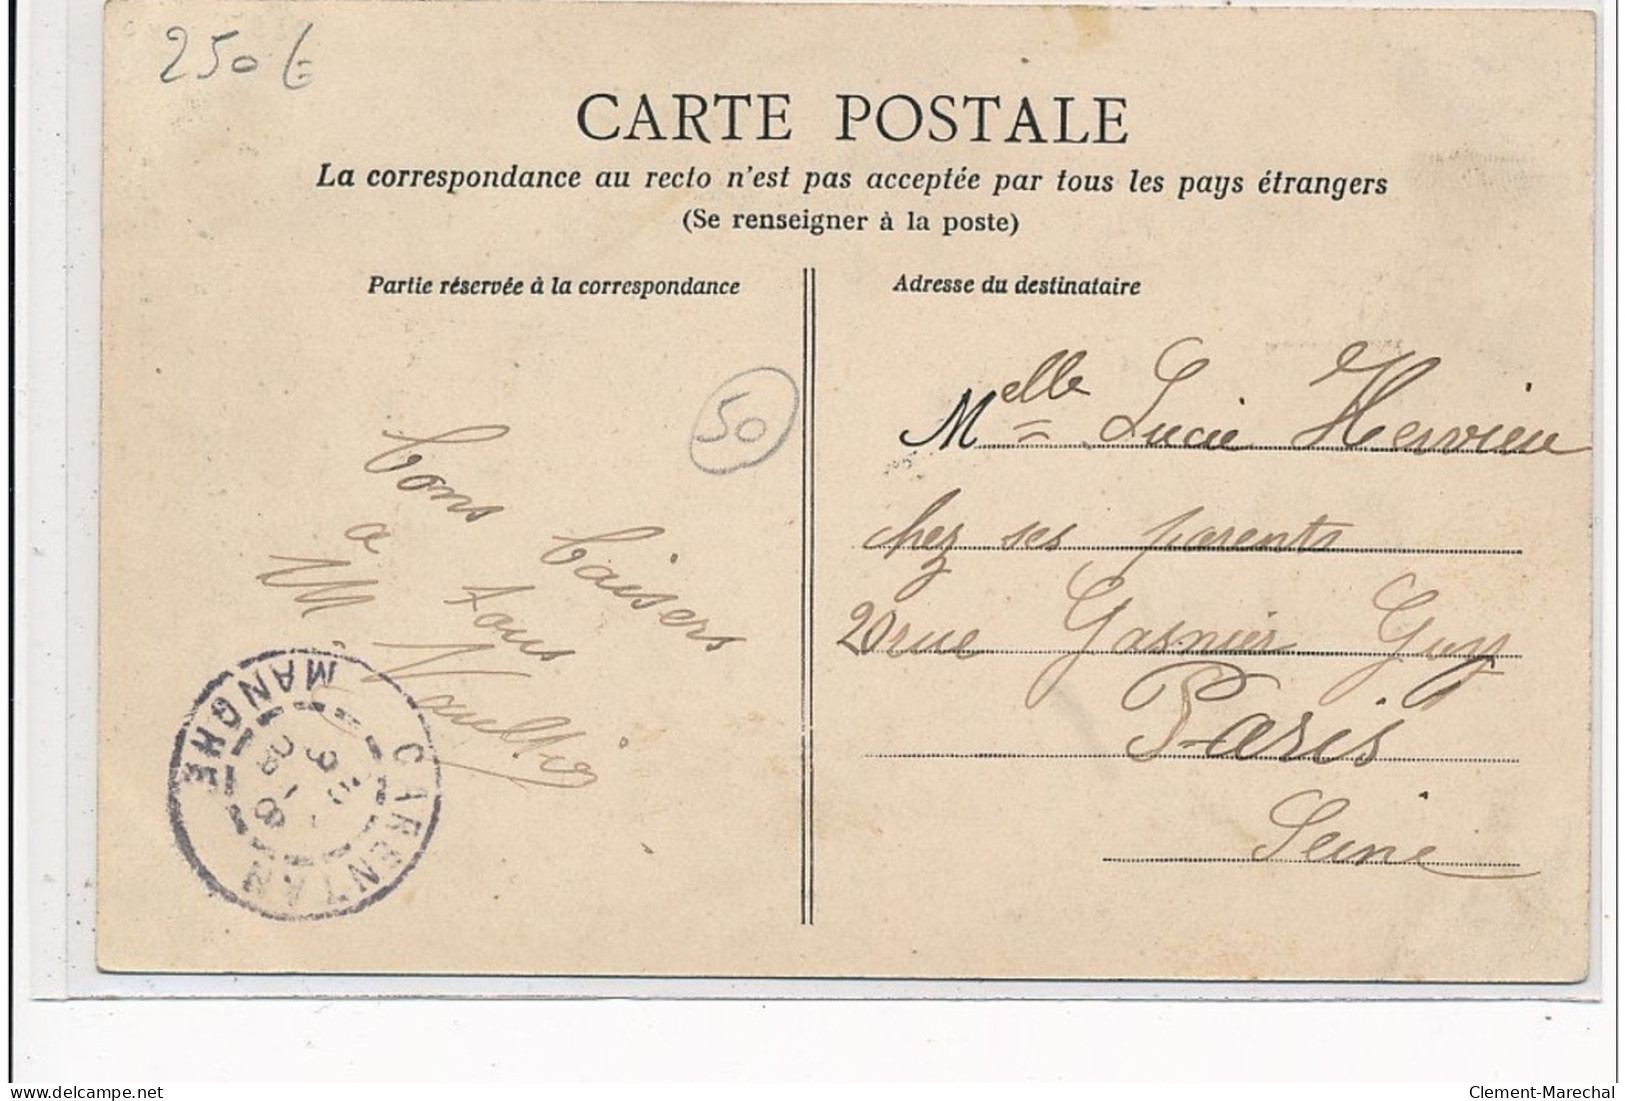 250 €
CARTE POSTALE
La correspondance au recto n'est pas acceptée par tous les pays étrangers
(Se renseigner à la poste)
Partie réservée à la correspondance
bons baisers
a tous
M
50
CARENTAN
MANCHE
Adresse du destinataire
Melle Lucie Hervieu
chez ses parents
20 rue Gasnier Guy
Paris
Seine
delcampe.net
Clement-Marechal